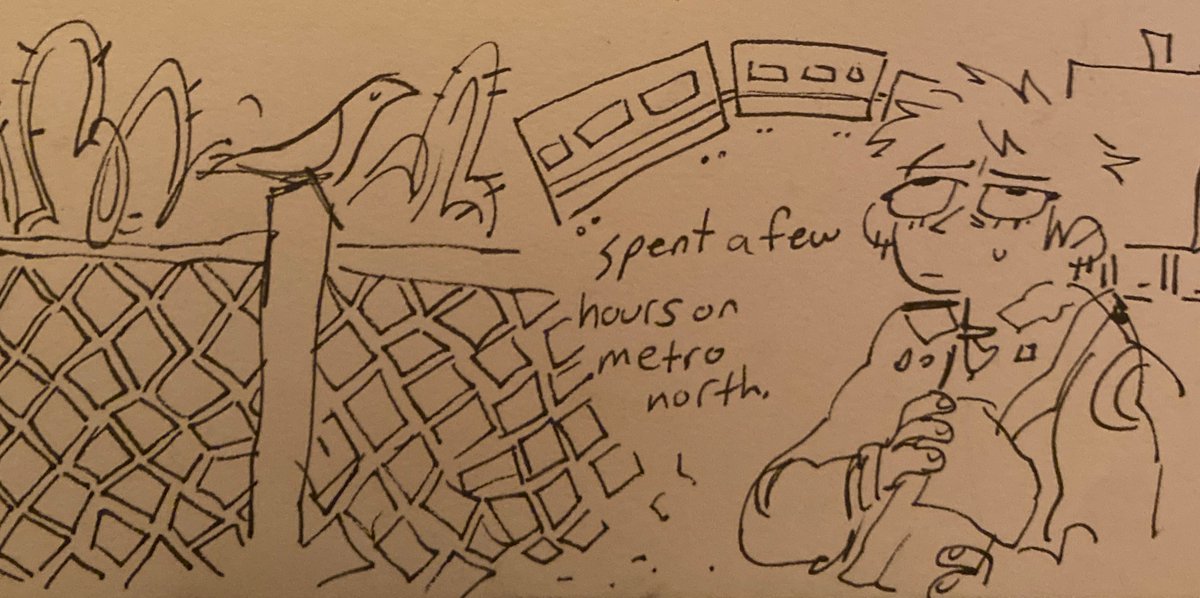 spent a few
hours on
metro
north.